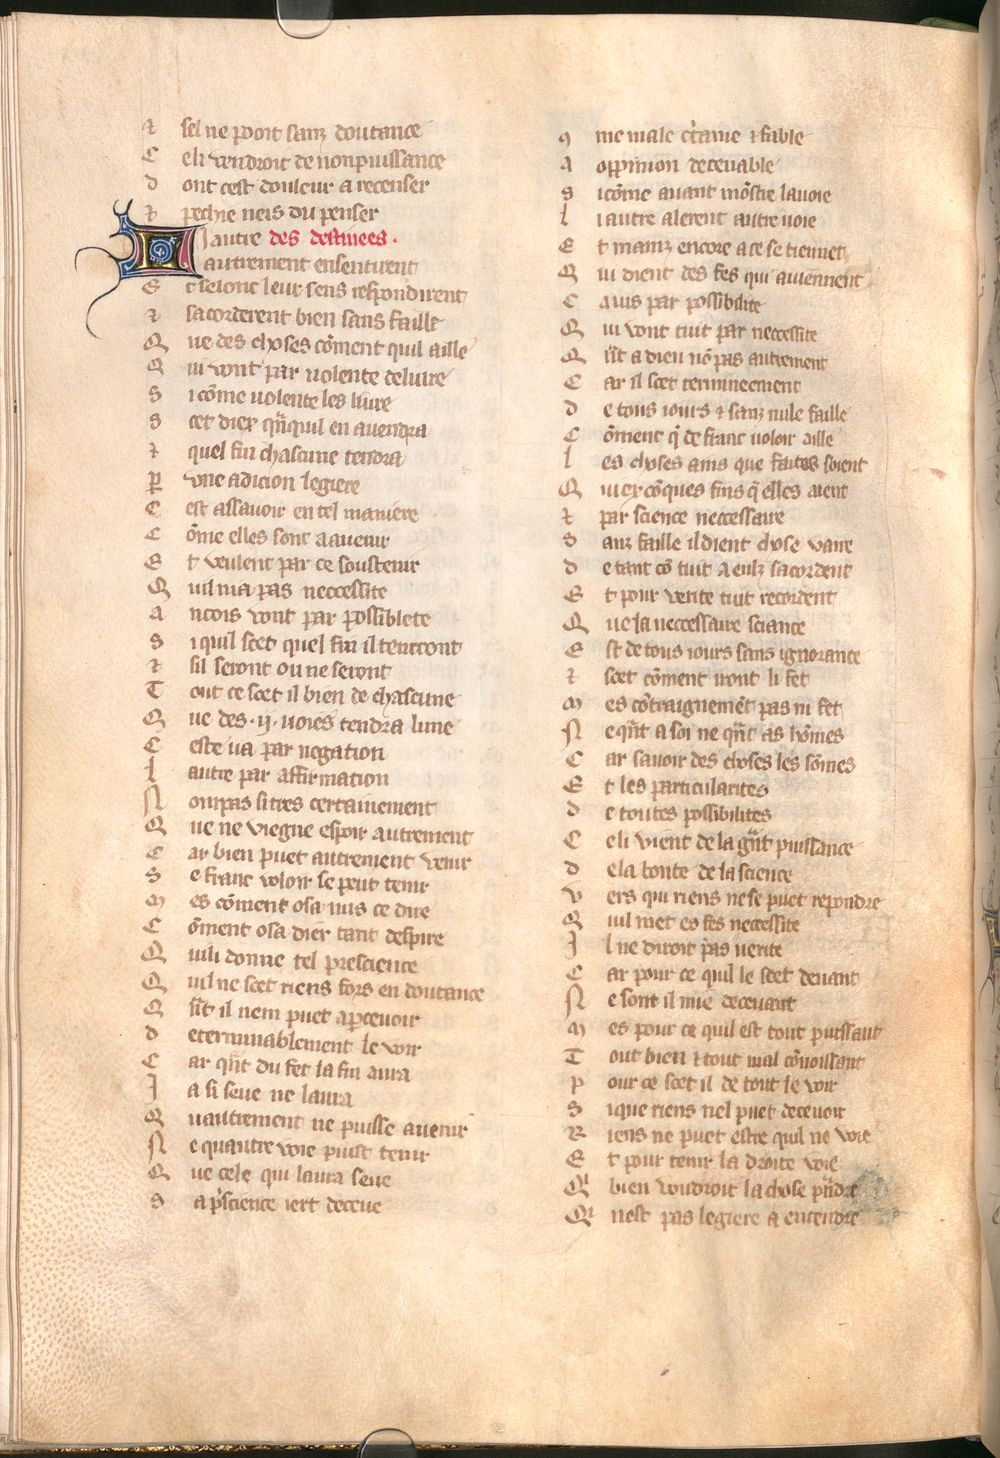 ⁊ sel ne pooit sanz doutance
C eli vendroit de nonpuissance
D ont cest douleur a recenser
⁊ pechie neis du penser
Li autre des destinees.
autrement ensentirent
E t selonc leur sens respondirent
⁊ sacorderent bien sans faille
Q ue des choses cōment quil aille
Q ui vont par volente delivre
S i cōme volente les livre
S cet diex qn̄quil en avendra
⁊ quel fin chascune tendra
P une adicion legiere
C est assavoir en tel maniere
C ōme elles sont a avenir
E t veulent par ce soustenir
Q uil nia pas neccessite
A ncois vont par possiblete
S i quil scet quel fin il tenrront
⁊ sil seront ou ne seront
T out ce scet il bien de chascune
Q ue des .ij. voies tendra lune
C este va par negation
L autre par affirmation
N on pas si tres certainement
Q ue ne viegne espoir autrement
C ar bien puet autrement venir
S e franc voloir se peut tenir
M es cōment osa nus ce dire
C ōment osa dieu tant despire
Q uili donne tel prescience
Q uil ne scet riens fors en doutance
Q n̄t il nem puet apcevoir
D eterminablement le voir
C ar qn̄t du fet la fin aura
J a si seue ne laura
Q uautrement ne puisse avenir
N e quautre voie puist tenir
Q ue cele qui laura seue
S a pͥscience iert deceue
9 me male cͬtaine ⁊ fable
A oppinion decevable
S i cōme avant mōstre lavoie
L i autre alerent autre voie
E t mainz encore a ce se tiennēt
Q ui dient des fes qui aviennent
C a ius par possibilite
Q ui vont tuit par neccessite
Q n̄t a dieu nō pas autrement
C ar il scet termineement
D e tous iours ⁊ sanz nule faille
C ōment q̄ de franc voloir aille
L es choses ains que faites soient
Q uiex cōques fins q̄ elles aient
⁊ par science neccessaire
S anz faille il dient chose vaire
D e tant cō tuit a eulz sacordent
E t pour verite tuit recordent
Q ue la neccessaire sciance
E st de tous iours sans ignorance
⁊ scet cōment iront li fet
M es cōtraignemēt pas ni fet
N e qn̄t a soi ne qn̄t as hōmes
C ar savoir des choses les sōmes
E t les particularites
D e toutes possibilites
C eli vient de la gͣnt puissance
D e la bonte de la science
V ers qui riens ne se puet repondre
Q uil met es fes neccessite
I l ne diroit pas verite
C ar pour ce quil le scet devant
N e sont il mie decevant
M es pour ce quil est tout puissant
T out bien ⁊ tout mal cōnoissant
P our ce scet il de tout le voir
S i que riens nel puet decevoir
R iens ne puet estre quil ne voie
E t pour tenir la droite voie
Qͥ bien voudroit la chose pͣndre
Qͥ nest pas legiere a entendre